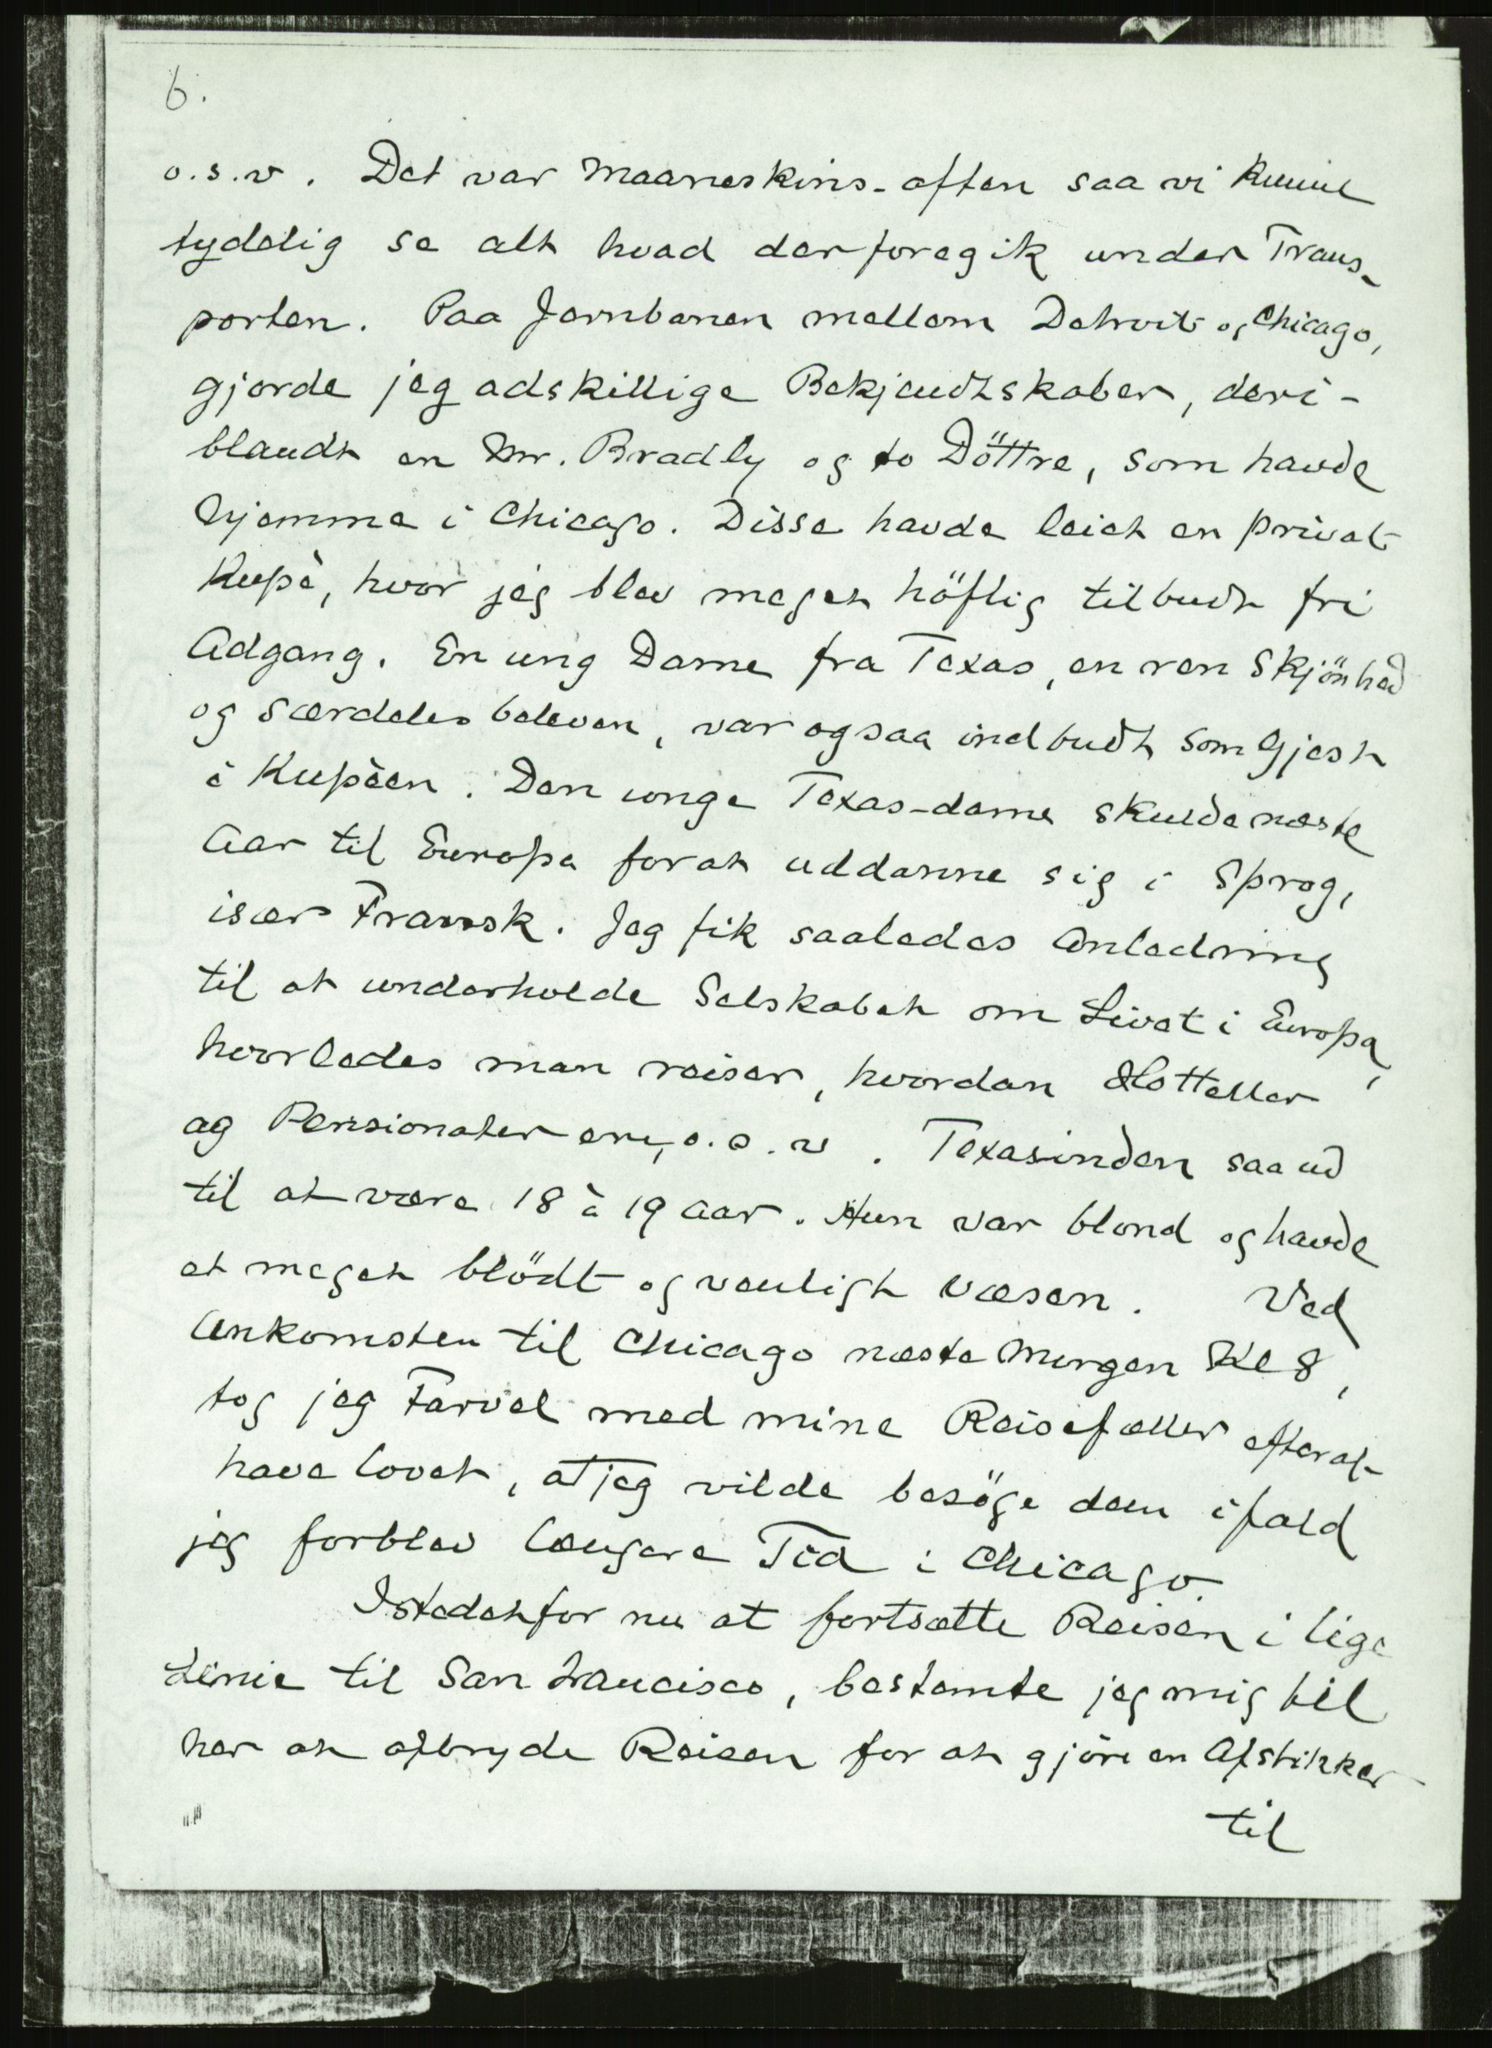 6.
o.s.v. Det var Maaneskins-aften saa vi kunne
tydelig se alt hvad der foregik under Trans-
porten. Paa Jernbanen mellem Detroit og Chicago,
gjorde jeg adskillige Bekjendtskaber, deri-
blandt en Mr. Bradly og to Döttre, som havde
hjemme i Chicago. Disse havde leiet en privat
Kupè, hvor jeg blev meget höflig tilbudt fri
Adgang. En ung Dame fra Texas, en ren Skjönhed
og særdeles beleven, var ogsaa indbudt som Gjest
i Kupèen. Den unge Texas-dame skulde næste
Aar til Europa forat uddanne sig i Sprog,
især Fransk. Jeg fik saaledes Anledning
til at underholde Selskabet om Livet i Europa,
hvorledes man reiser, hvordan Hotteller
og Pensionater ere, o.s.v. Texasinden saa ud
til at være 18 à 19 Aar. Hun var blond og havde
et meget blödt og venligt Væsen. Ved
Ankomsten til Chicago næste Morgen Kl 8,
tog jeg Farvel med mine Reisefæller efterat
have lovet, at jeg vilde besöge dem ifald
jeg forblev længere Tid i Chicago.
Istedetfor nu at fortsætte Reisen i lige
Linie til San Francisco, bestemte jeg mig til
her at afbryde Reisen for at gjöre en Afstikker
til